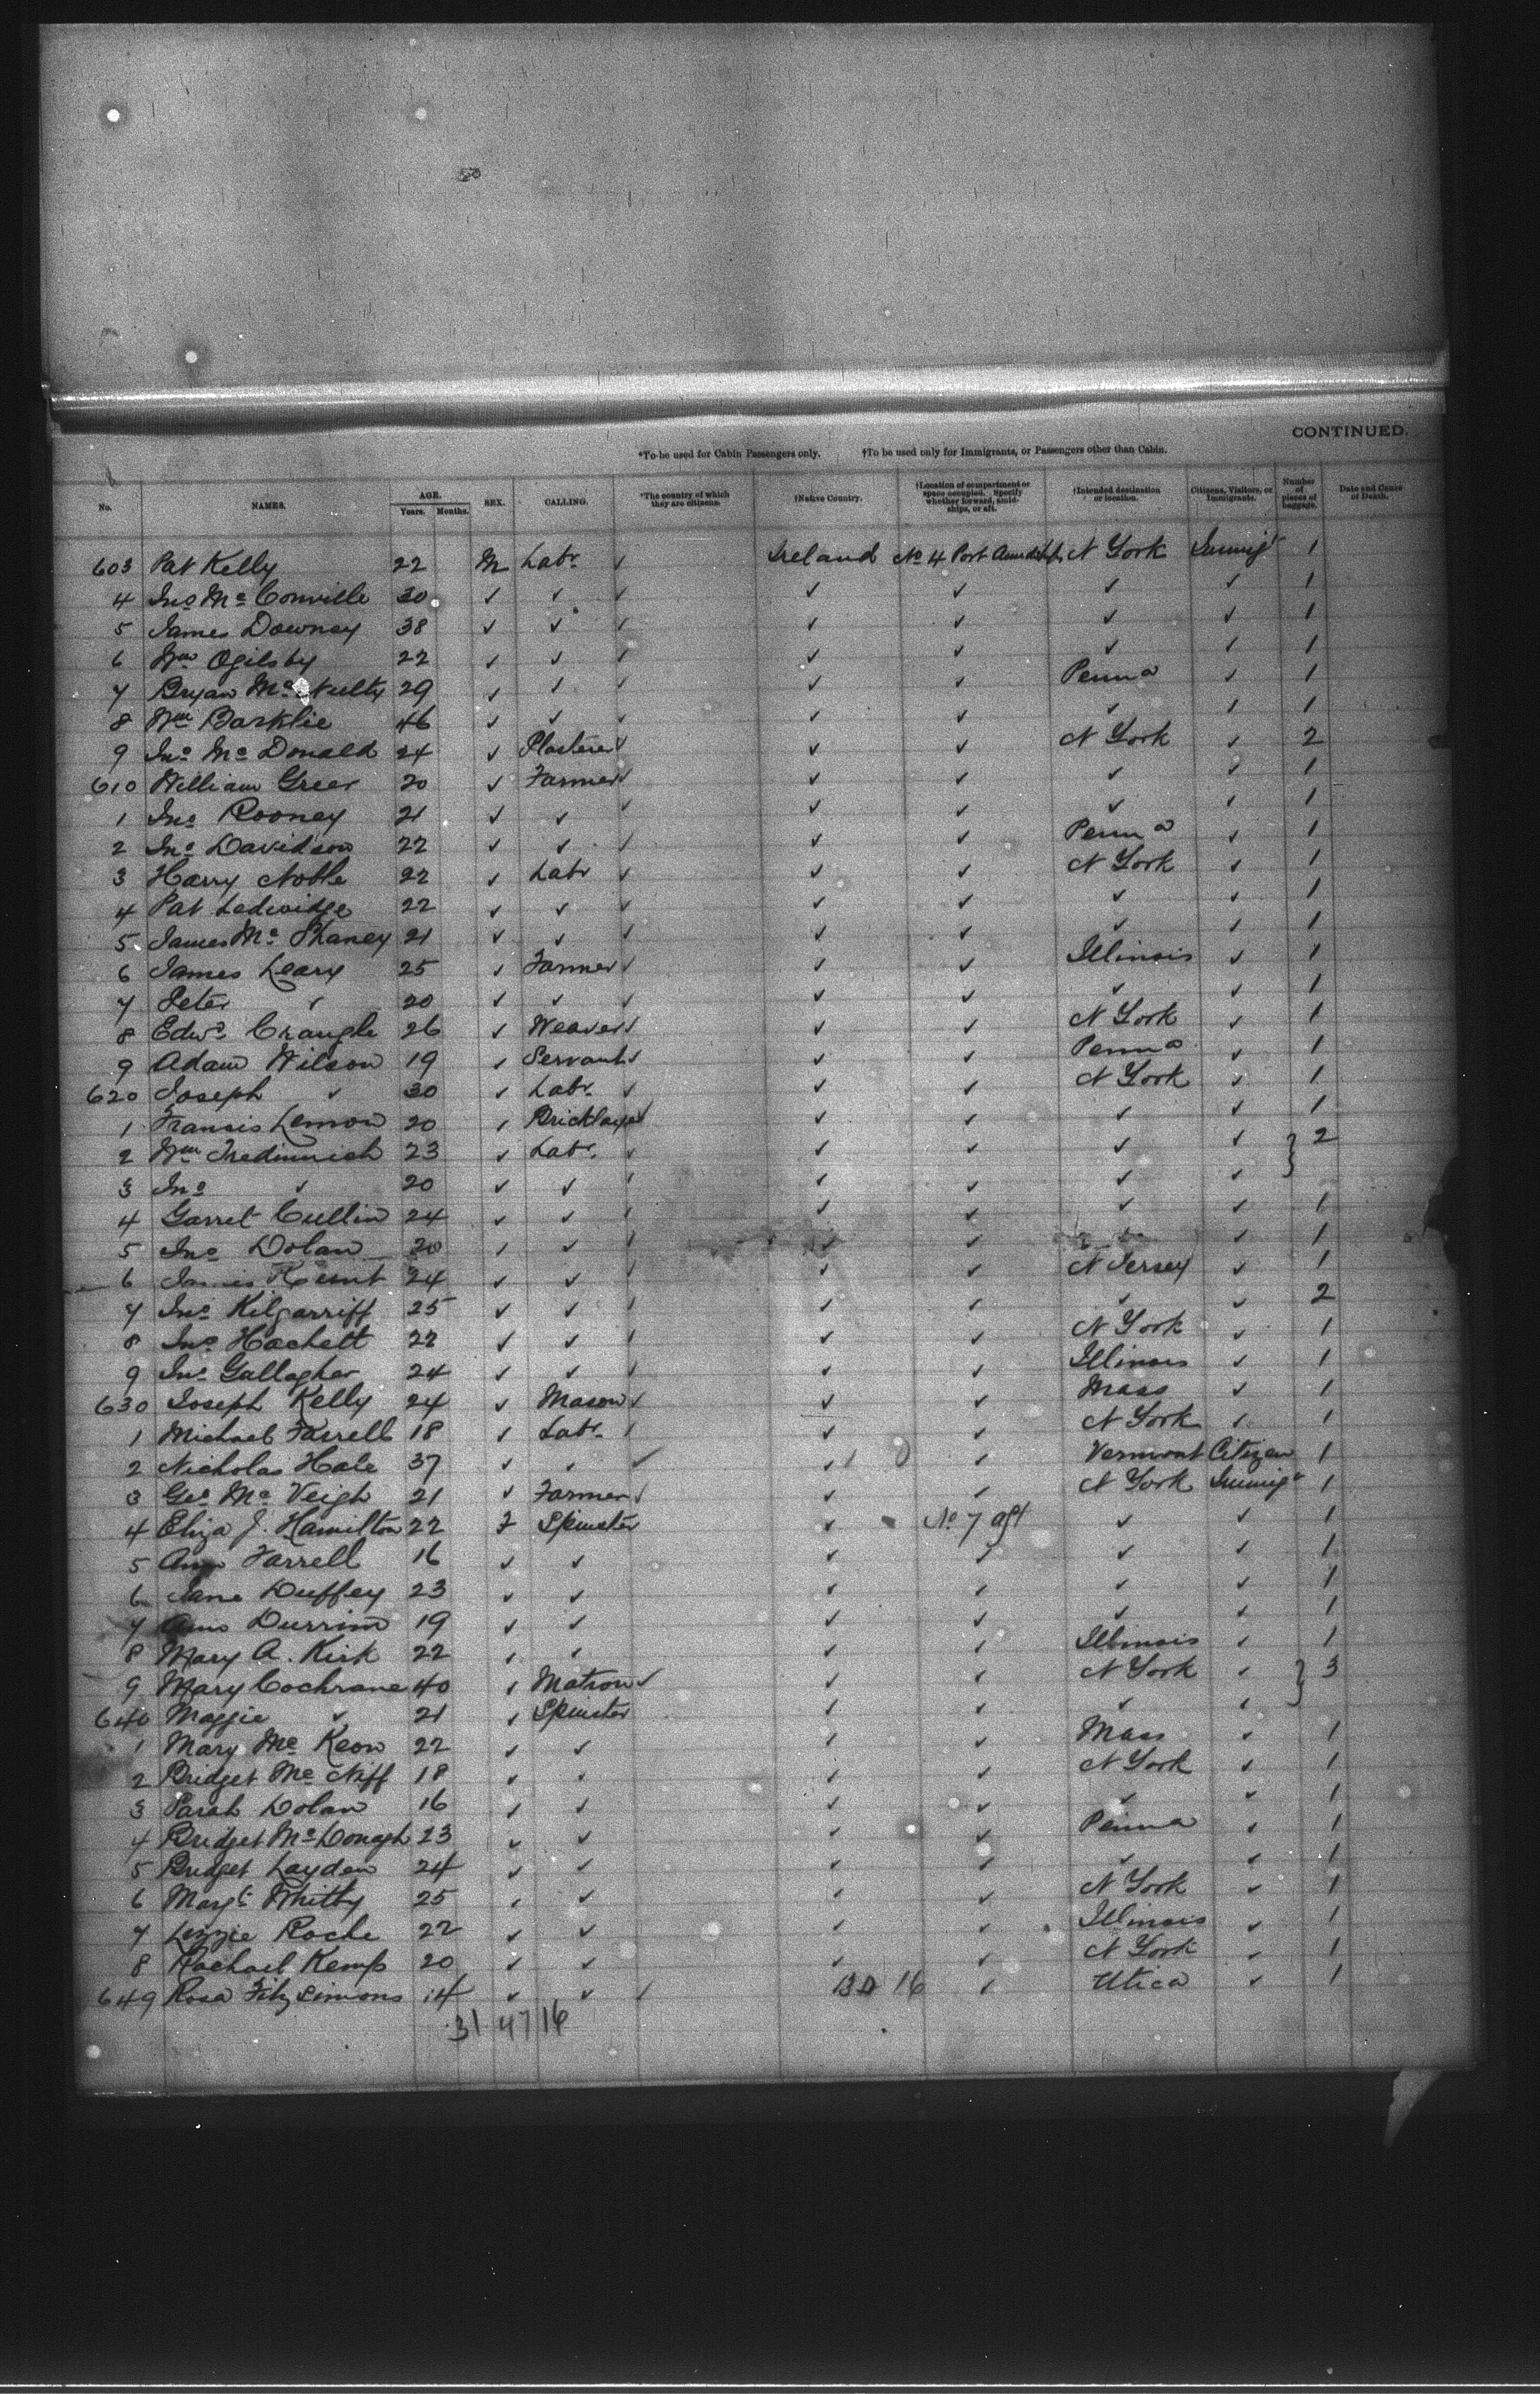 50
CONTINUED.
*To be used for Cabin Passengers only. †To be used only for Immigrants, or Passengers other than Cabin.
No. NAMES. AGE. Years. Months. SEX. CALLING. *The country of which they are citizens. †Native Country. †Location of compartment or space occupied. Specify whether forward, amidships, or aft. †Intended destination or location. Citizens, Visitors, or Immigrants. Number of pieces of baggage. Date and Cause of Death.
603 Pat Kelly 22 M Labr ✓ Ireland No 4 Port N York Immigt 1
4 Jno Mc Conville 30 ✓ ✓ ✓ ✓ ✓ ✓ ✓ 1
5 James Downey 38 ✓ ✓ ✓ ✓ ✓ ✓ ✓ 1
6 Wm Ogilsby 22 ✓ ✓ ✓ ✓ ✓ ✓ ✓ 1
7 Bryan Mc Nulty 29 ✓ ✓ ✓ ✓ ✓ Penna ✓ 1
8 Wm Barklie 46 ✓ ✓ ✓ ✓ ✓ ✓ ✓ 1
9 Jno Mc Donald 24 ✓ Plasterer ✓ ✓ ✓ N York ✓ 2
610 William Greer 20 ✓ Farmer ✓ ✓ ✓ ✓ ✓ 1
1 Jno Rooney 21 ✓ ✓ ✓ ✓ ✓ ✓ ✓ 1
2 Jno Davidson 22 ✓ ✓ ✓ ✓ ✓ Penna ✓ 1
3 Harry Noble 22 ✓ Labr ✓ ✓ ✓ N York ✓ 1
4 Pat Ledwidge 22 ✓ ✓ ✓ ✓ ✓ ✓ ✓ 1
5 James Mc Shaney 21 ✓ ✓ ✓ ✓ ✓ ✓ ✓ 1
6 James Leary 25 ✓ Farmer ✓ ✓ ✓ Illinois ✓ 1
7 Peter ✓ 20 ✓ ✓ ✓ ✓ ✓ ✓ ✓ 1
8 Edwd Crangle 26 ✓ Weaver ✓ ✓ ✓ N York ✓ 1
9 Adam Wilson 19 ✓ Servant ✓ ✓ ✓ Penna ✓ 1
620 Joseph ✓ 30 ✓ Labr ✓ ✓ ✓ N York ✓ 1
1 Francis Lennon 20 ✓ Bricklayer ✓ ✓ ✓ ✓ ✓ 1
2 Wm Tredinnich 23 ✓ Labr ✓ ✓ ✓ ✓ ✓ } 2
3 Jno ✓ 20 ✓ ✓ ✓ ✓ ✓ ✓ ✓
4 Garret Cullin 24 ✓ ✓ ✓ ✓ ✓ ✓ ✓ 1
5 Jno Dolan 20 ✓ ✓ ✓ ✓ ✓ ✓ 1
6 James 24 ✓ ✓ ✓ ✓ ✓ N Jersey ✓ 1
7 Jno Kilgarriff 25 ✓ ✓ ✓ ✓ ✓ ✓ ✓ 2
8 Jno Hachett 22 ✓ ✓ ✓ ✓ ✓ N York ✓ 1
9 Jno Gallagher 24 ✓ ✓ ✓ ✓ ✓ Illinois ✓ 1
630 Joseph Kelly 24 ✓ Mason ✓ ✓ ✓ Mass ✓ 1
1 Michael Farrell 18 ✓ Labr ✓ ✓ ✓ N York ✓ 1
2 Nicholas Hale 37 ✓ ✓ ✓ ✓ ✓ Vermont Citizen 1
3 Geo Mc Veigh 21 ✓ Farmer ✓ ✓ ✓ N York Immigt 1
4 Eliza J. Hamilton 22 F Spinster ✓ No 7 aft ✓ ✓ 1
5 Ann Farrell 16 ✓ ✓ ✓ ✓ ✓ ✓ 1
6 Jane Duffey 23 ✓ ✓ ✓ ✓ ✓ ✓ 1
7 Ann Durrim 19 ✓ ✓ ✓ ✓ ✓ ✓ 1
8 Mary A. Kirk 22 ✓ ✓ ✓ ✓ Illinois ✓ 1
9 Mary Cochrane 40 ✓ Matron ✓ ✓ ✓ N York ✓ } 3
640 Maggie ✓ 21 ✓ Spinster ✓ ✓ ✓ ✓
1 Mary Mc Keon 22 ✓ ✓ ✓ ✓ Mass ✓ 1
2 Bridget Mc Niff 18 ✓ ✓ ✓ ✓ N York ✓ 1
3 Sarah Dolan 16 ✓ ✓ ✓ ✓ ✓ ✓ 1
4 Bridget Mc Donagh 23 ✓ ✓ ✓ ✓ Penna ✓ 1
5 Bridget Layden 24 ✓ ✓ ✓ ✓ ✓ ✓ 1
6 Margt Whitty 25 ✓ ✓ ✓ ✓ N York ✓ 1
7 Lizzie Roche 22 ✓ ✓ ✓ ✓ Illinois ✓ 1
8 Rachael Kemp 20 ✓ ✓ ✓ ✓ N York ✓ 1
649 Rosa Fitzsimons 14 ✓ ✓ ✓ 16 ✓ Utica ✓ 1
31 47 16